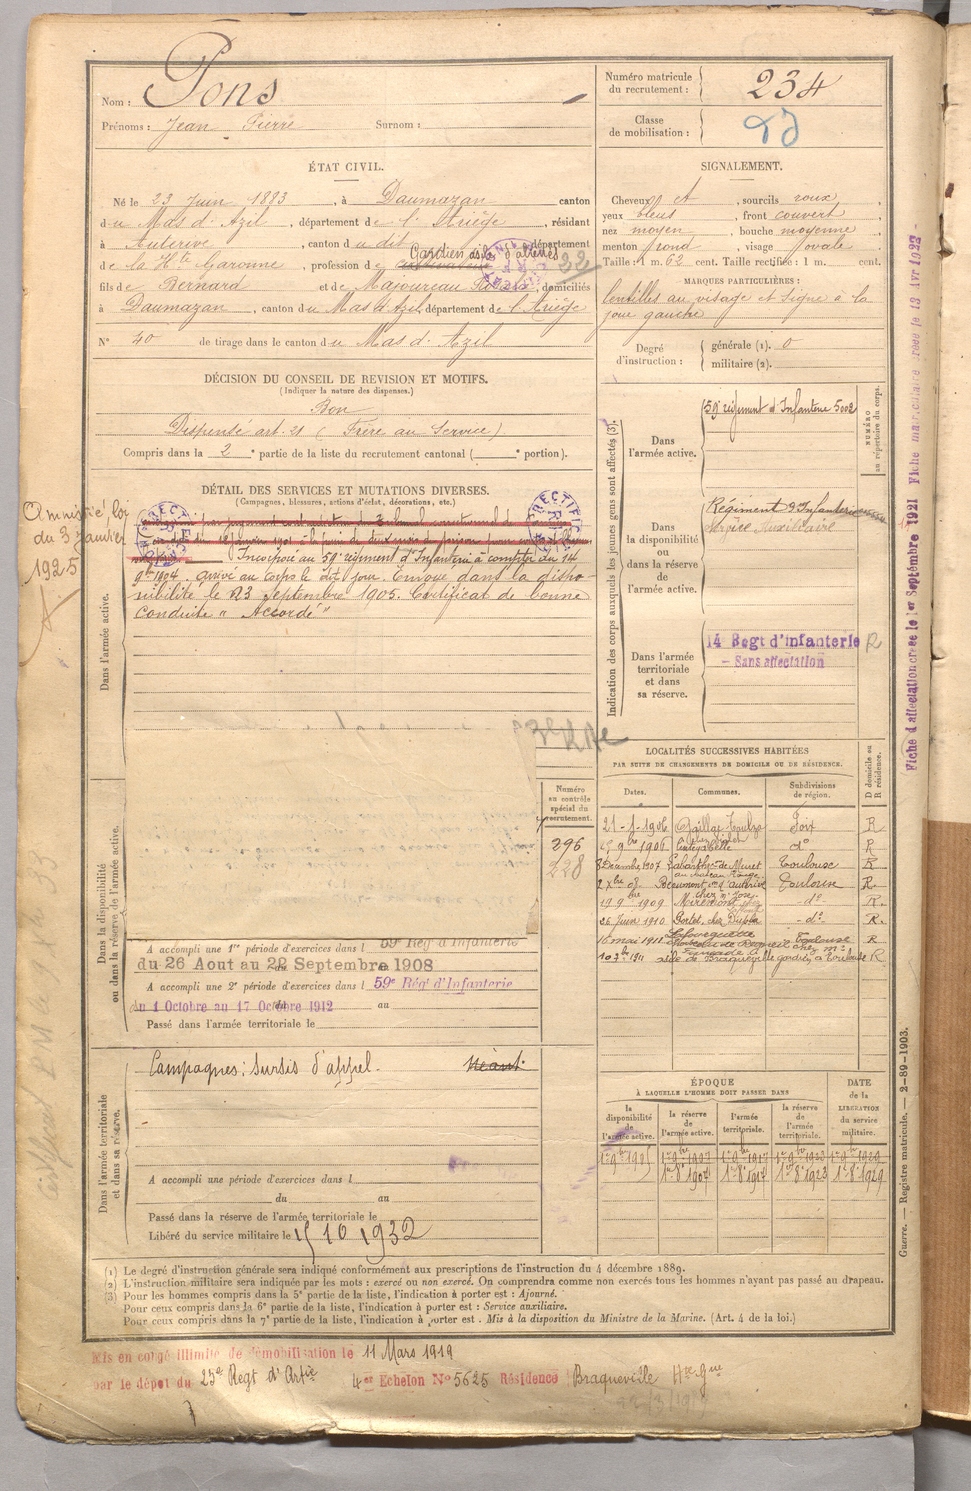 Nom : Pons
Prénoms : Jean Pierre Surnom :
Numéro matricule du recrutement : 234
Classe de mobilisation :
ÉTAT CIVIL.
Né le 23 Juin 1883, à Daumazan canton
du Mas d'Azil, département de l'Ariège, résidant
à Auterive, canton du dit, département
de la Hte Garonne, profession de Gardien asile d'aliénés 22
fils de Bernard et de Majoureau, domiciliés
à Daumazan, canton du Mas d'Azil, département de l'Ariège
N° 40 de tirage dans le canton du Mas d'Azil
SIGNALEMENT.
Cheveux, sourcils roux
yeux bleus, front couvert
nez moyen, bouche moyenne
menton rond, visage ovale
Taille : 1 m. 62 cent. Taille rectifiée : 1 m. cent.
MARQUES PARTICULIÈRES :
lentilles au visage et signe à la
joue gauche
Degré d'instruction : générale (1). 0
militaire (2).
DÉCISION DU CONSEIL DE REVISION ET MOTIFS.
(Indiquer la nature des dispenses.)
Bon
Dispensé art. 21 (Frère au Service)
Compris dans la 2e partie de la liste du recrutement cantonal ( e portion).
DÉTAIL DES SERVICES ET MUTATIONS DIVERSES.
(Campagnes, blessures, actions d'éclat, décorations, etc.)
Amnistié loi
du 3 Janvier
1925
Dans l'armée active.
Incorporé au 59e régiment d'Infanterie à compter du 14
9bre 1904. arrivé au corps le dit jour. Envoyé dans la dispo-
nibilité le 23 Septembre 1905. Certificat de bonne
conduite "Accordé"
Indication des corps auxquels les jeunes gens sont affectés (3).
NUMÉRO au répertoire du corps.
Dans l'armée active. 59e régiment d'Infanterie 5002
Dans la disponibilité ou dans la réserve de l'armée active. Régiment d'Infanterie
Service Auxiliaire
Dans l'armée territoriale et dans sa réserve. 14 Regt d'infanterie R
- Sans affectation
Fiche d'affectation creee le 1er Septembre 1921 Fiche matriculaire creee le 13 Avr 1922
LOCALITÉS SUCCESSIVES HABITÉES
PAR SUITE DE CHANGEMENTS DE DOMICILE OU DE RÉSIDENCE.
Dates. Communes. Subdivisions de région. D domicile ou R résidence.
21-1-1906 Gaillac Toulza Foix R
9bre 1906 Cintegabelle do R
Décembre 1907 Labarthe de Muret Toulouse R
Xbre 08 Beaumont d'auterive Toulouse R
19 9bre 1909 Miremont -do- R.
26 Juin 1910 Portet, chez -do- R.
16 mai 1911 Lafourguette Toulouse R
1911 asile de Braqueville à Toulouse R
Dans la disponibilité ou dans la réserve de l'armée active.
Numéro au contrôle spécial du recrutement.
296
228
A accompli une 1re période d'exercices dans l 59e Rég d'Infanterie
du 26 Aout au 22 Septembre 1908
A accompli une 2e période d'exercices dans l 59e Rég. d'Infanterie
du 1 Octobre au 17 Octobre 1912
Passé dans l'armée territoriale le
Dans l'armée territoriale et dans sa réserve.
Campagnes : Sursis d'appel. Néant.
A accompli une période d'exercices dans l
du au
Passé dans la réserve de l'armée territoriale le
Libéré du service militaire le 15 10 1932
ÉPOQUE
À LAQUELLE L'HOMME DOIT PASSER DANS
DATE de la LIBÉRATION du service militaire.
la disponibilité de l'armée active. la réserve de l'armée active. l'armée territoriale. la réserve de l'armée territoriale.
1er 9bre 1905 1er 9bre 1907 1er 9bre 1917 1er 9bre 1923 1er 9bre 1929
1er 8bre 1907 1er 8bre 1917 1er 8bre 1923 1er 8bre 1929
Guerre. — Registre matricule. — 2-89-1903.
(1) Le degré d'instruction générale sera indiqué conformément aux prescriptions de l'instruction du 4 décembre 1889.
(2) L'instruction militaire sera indiquée par les mots : exercé ou non exercé. On comprendra comme non exercés tous les hommes n'ayant pas passé au drapeau.
(3) Pour les hommes compris dans la 5e partie de la liste, l'indication à porter est : Ajourné.
Pour ceux compris dans la 6e partie de la liste, l'indication à porter est : Service auxiliaire.
Pour ceux compris dans la 7e partie de la liste, l'indication à porter est : Mis à la disposition du Ministre de la Marine. (Art. 4 de la loi.)
Mis en congé illimité de démobilisation le 11 Mars 1919
par le dépot du 23e Regt d'Artie 4e Echelon No 5625 Résidence Braqueville Hte Gne